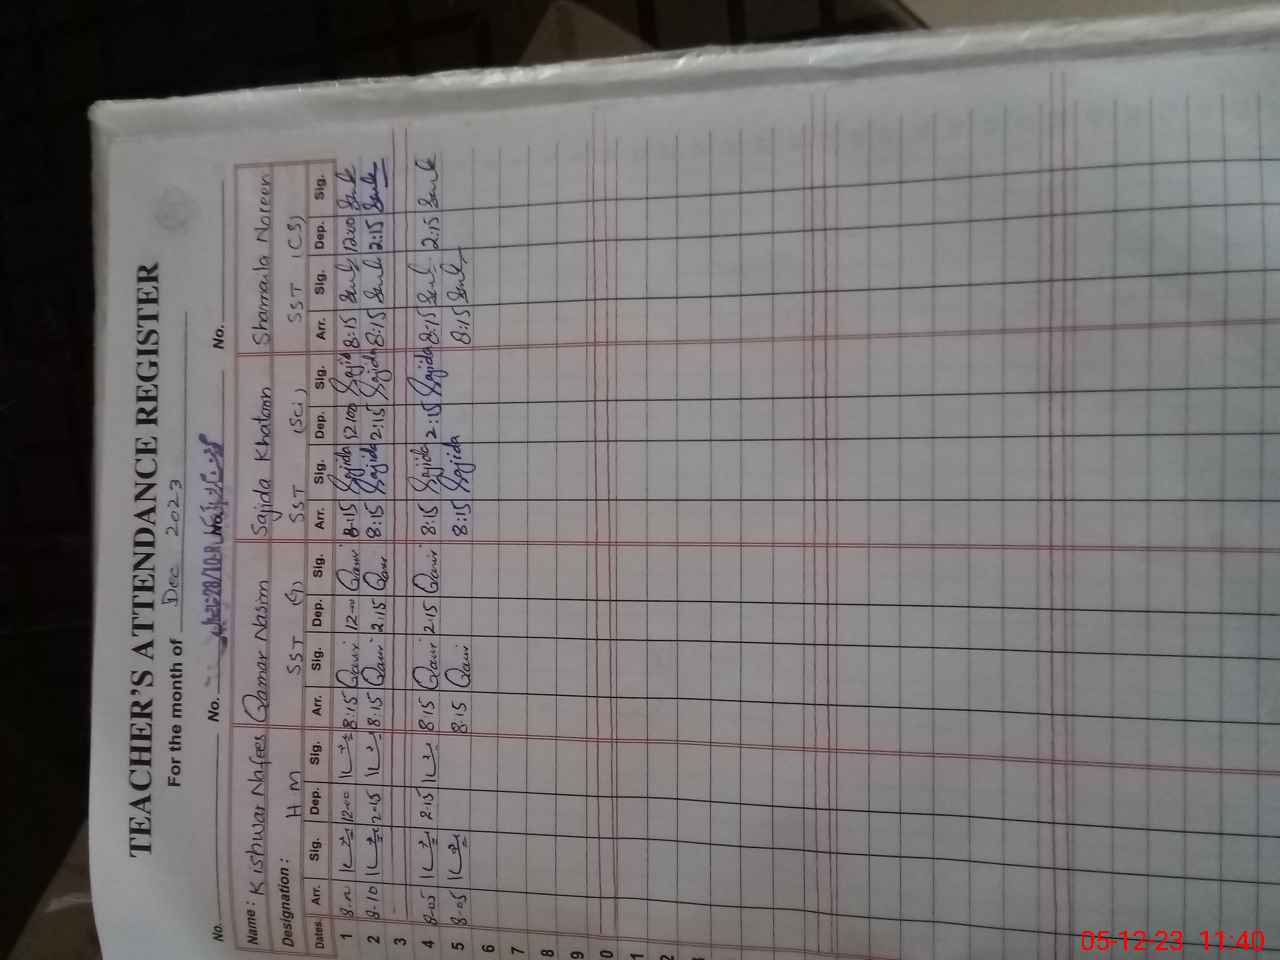 TEACHER'S ATTENDANCE REGISTER
For the month of Dec 2023
No. No. No. No.
Name: Kishwar Nafees Qamar Nasim Sajida Khatoon Shamaila Noreen
Designation: H M SST (G) SST (Sci) SST (CS)
Dates Arr. Sig. Dep. Sig. Arr. Sig. Dep. Sig. Arr. Sig. Dep. Sig. Arr. Sig. Dep. Sig.
1 12:00 8:15 Qamr 12:00 Qamr 8:15 Sajida 12:00 Sajida 8:15 12:00
2 8:10 2:15 8:15 Qamr 2:15 Qamr 8:15 Sajida 2:15 Sajida 8:15 2:15
3
4 8:05 2:15 8:15 Qamr 2:15 Qamr 8:15 Sajida 2:15 Sajida 8:15 2:15
5 8:05 8:15 Qamr 8:15 Sajida 8:15
6
7
8
9
0
1
2
05-12-23 11:40